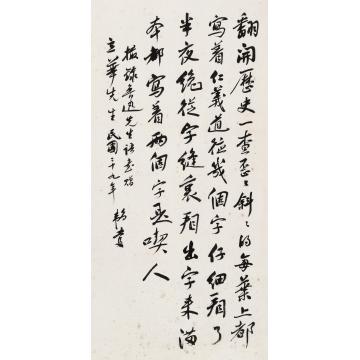 翻開歷史一查歪〻斜〻的每葉上都
寫着仁義道德幾個字仔細看了
半夜纔從字縫裏看出字來滿
本都寫着兩個字是喫人
撮錄魯迅先生語意贈
立華先生民國三十九年